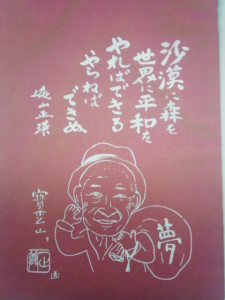 沙漠に森を
世界に平和を
やればできる
やらねば
できぬ
遠山正瑛
夢